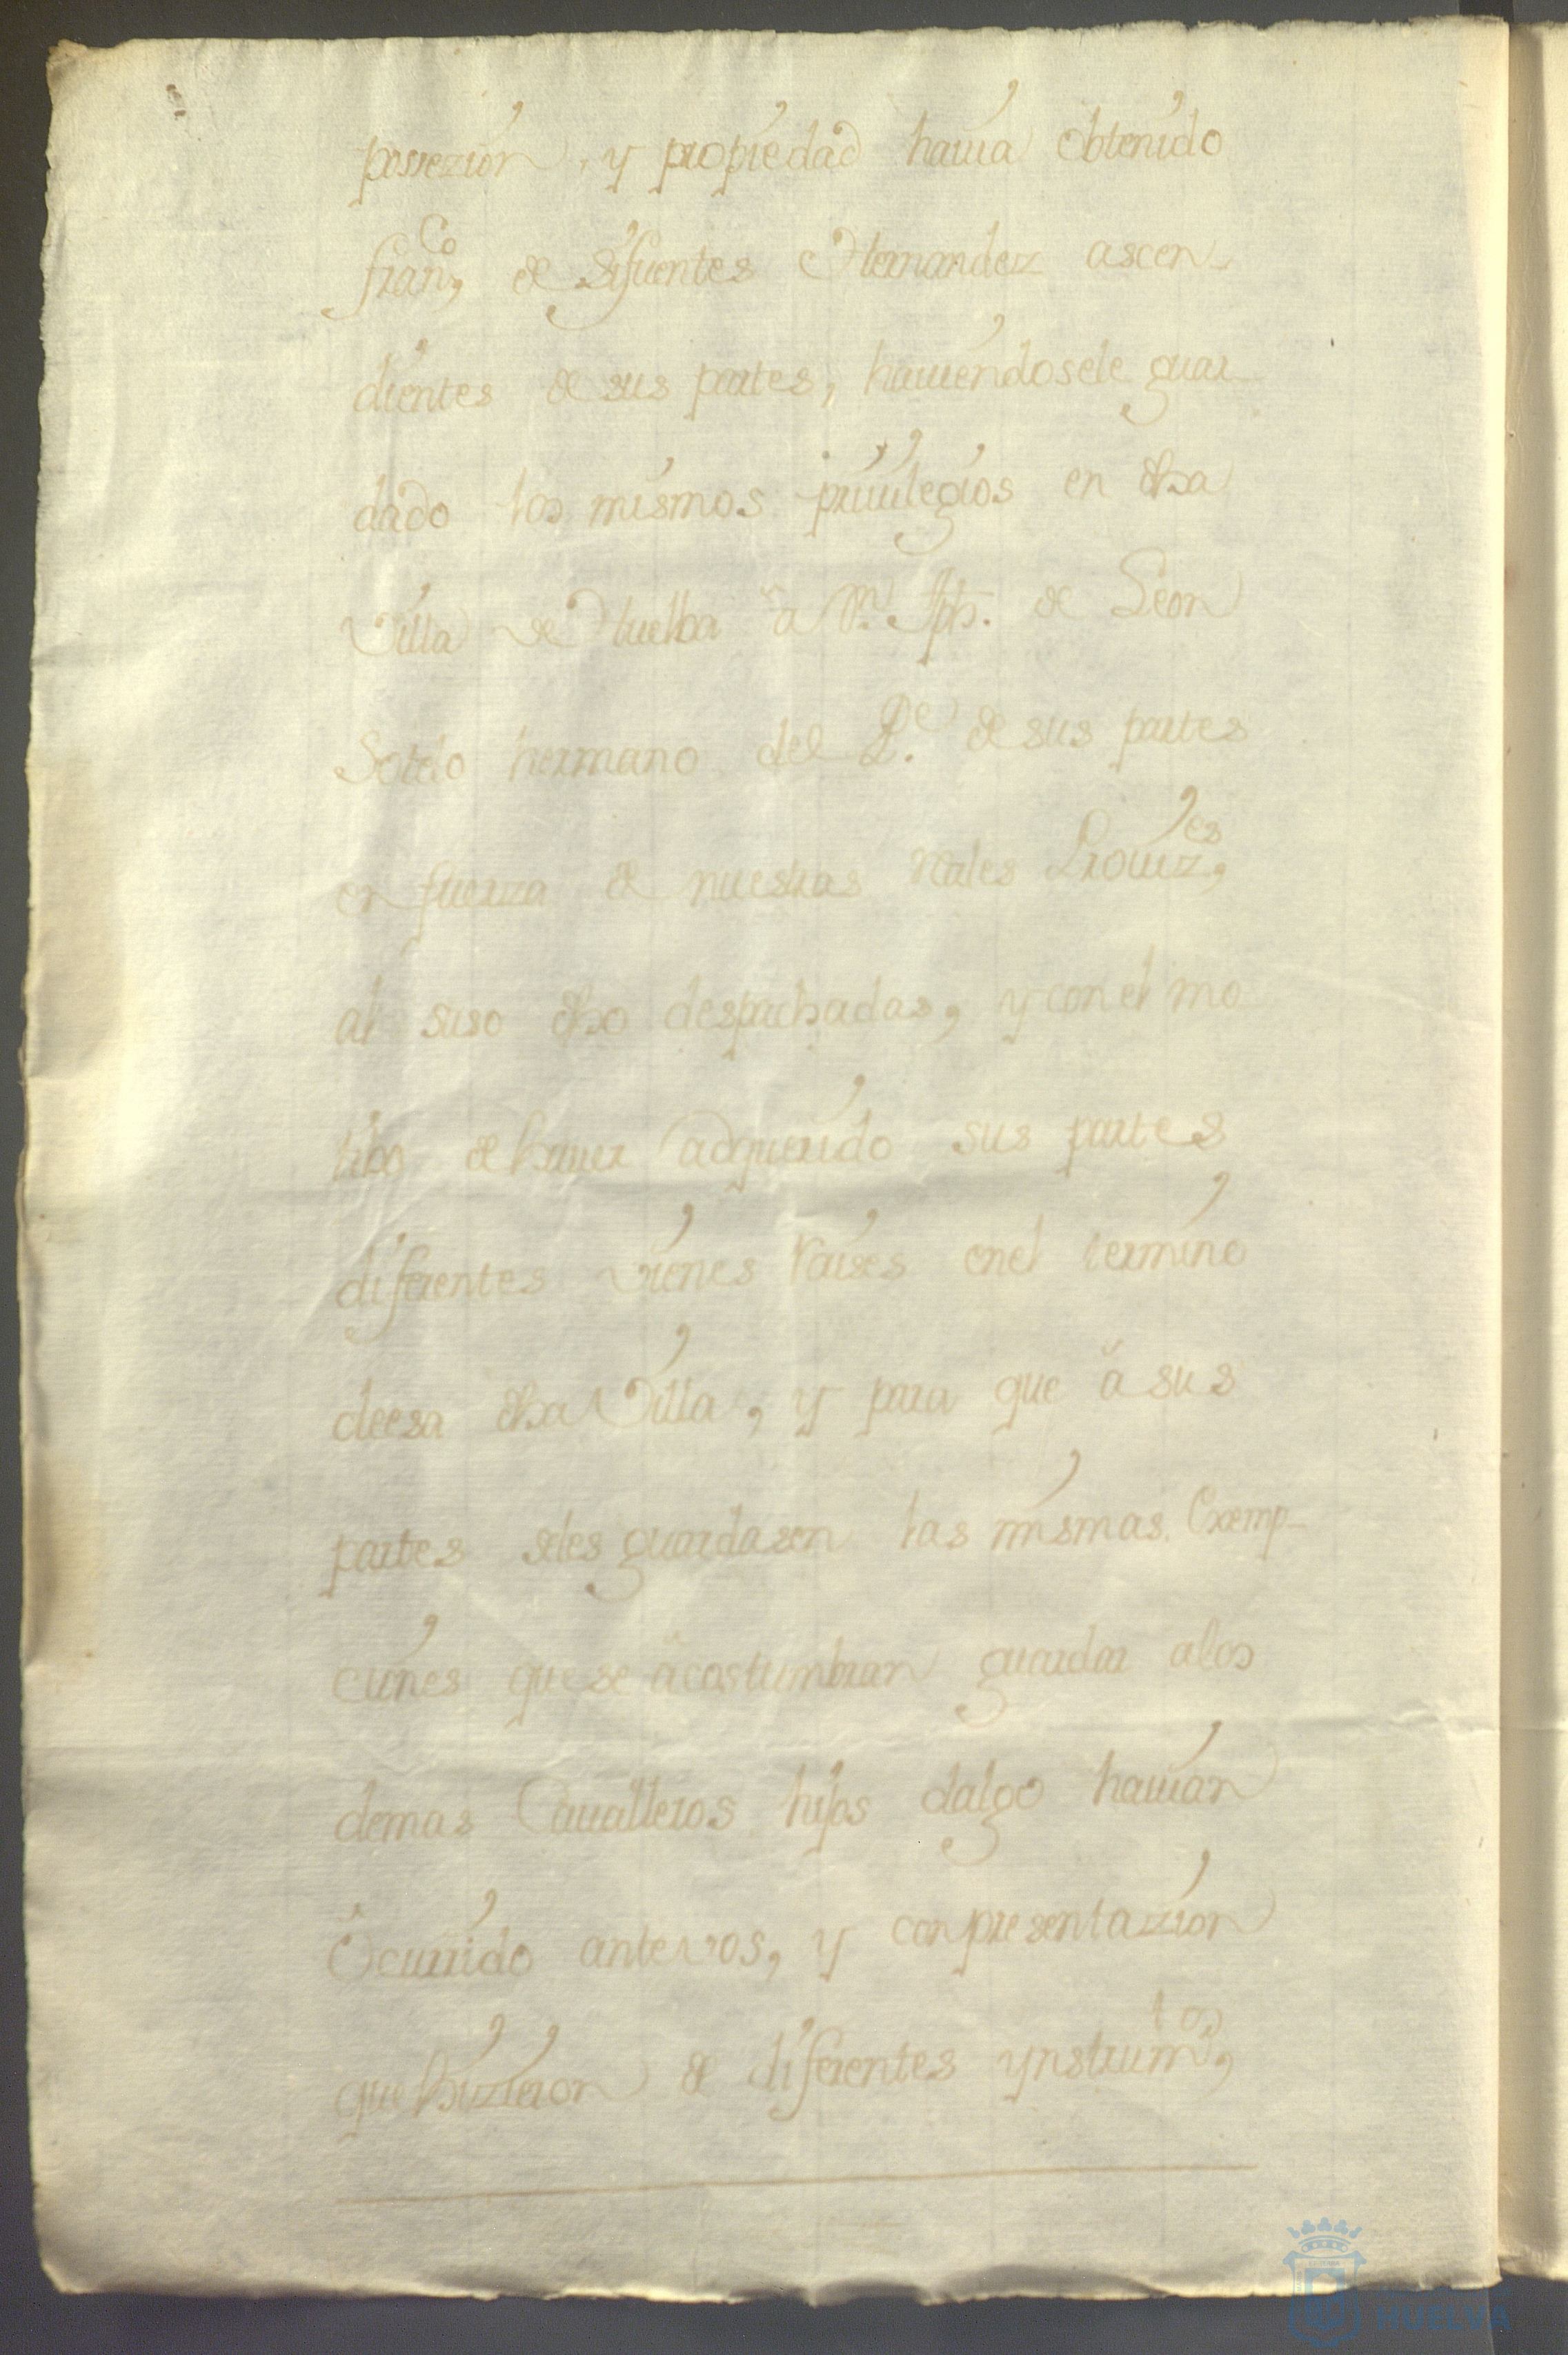 possezion, y propiedad hauia obtenido
fran,co de Sifuentes Hernandez ascen-
dientes de sus partes, hauiendosele guar-
dado los mismos priuilegios en dha
Villa de Huelba â Dn. Jph. de Leon
Sotelo hermano del Pe. de sus partes
en fuerza de nuestras reales Prouiz,es
al suso dho despachadas, y con el mo
tibo de hauer adquirido sus partes
diferentes vienes Raises en el termino
de esa dha Villa, y para que â sus
partes seles guardasen las mismas Exemp-
ciones que se âcostumbran guardar alos
demas Caualleros hijos dalgo hauian
Ôcurrido ante vos, y con presentazion
que hizieron de diferentes ynstrum,tos
HUELVA